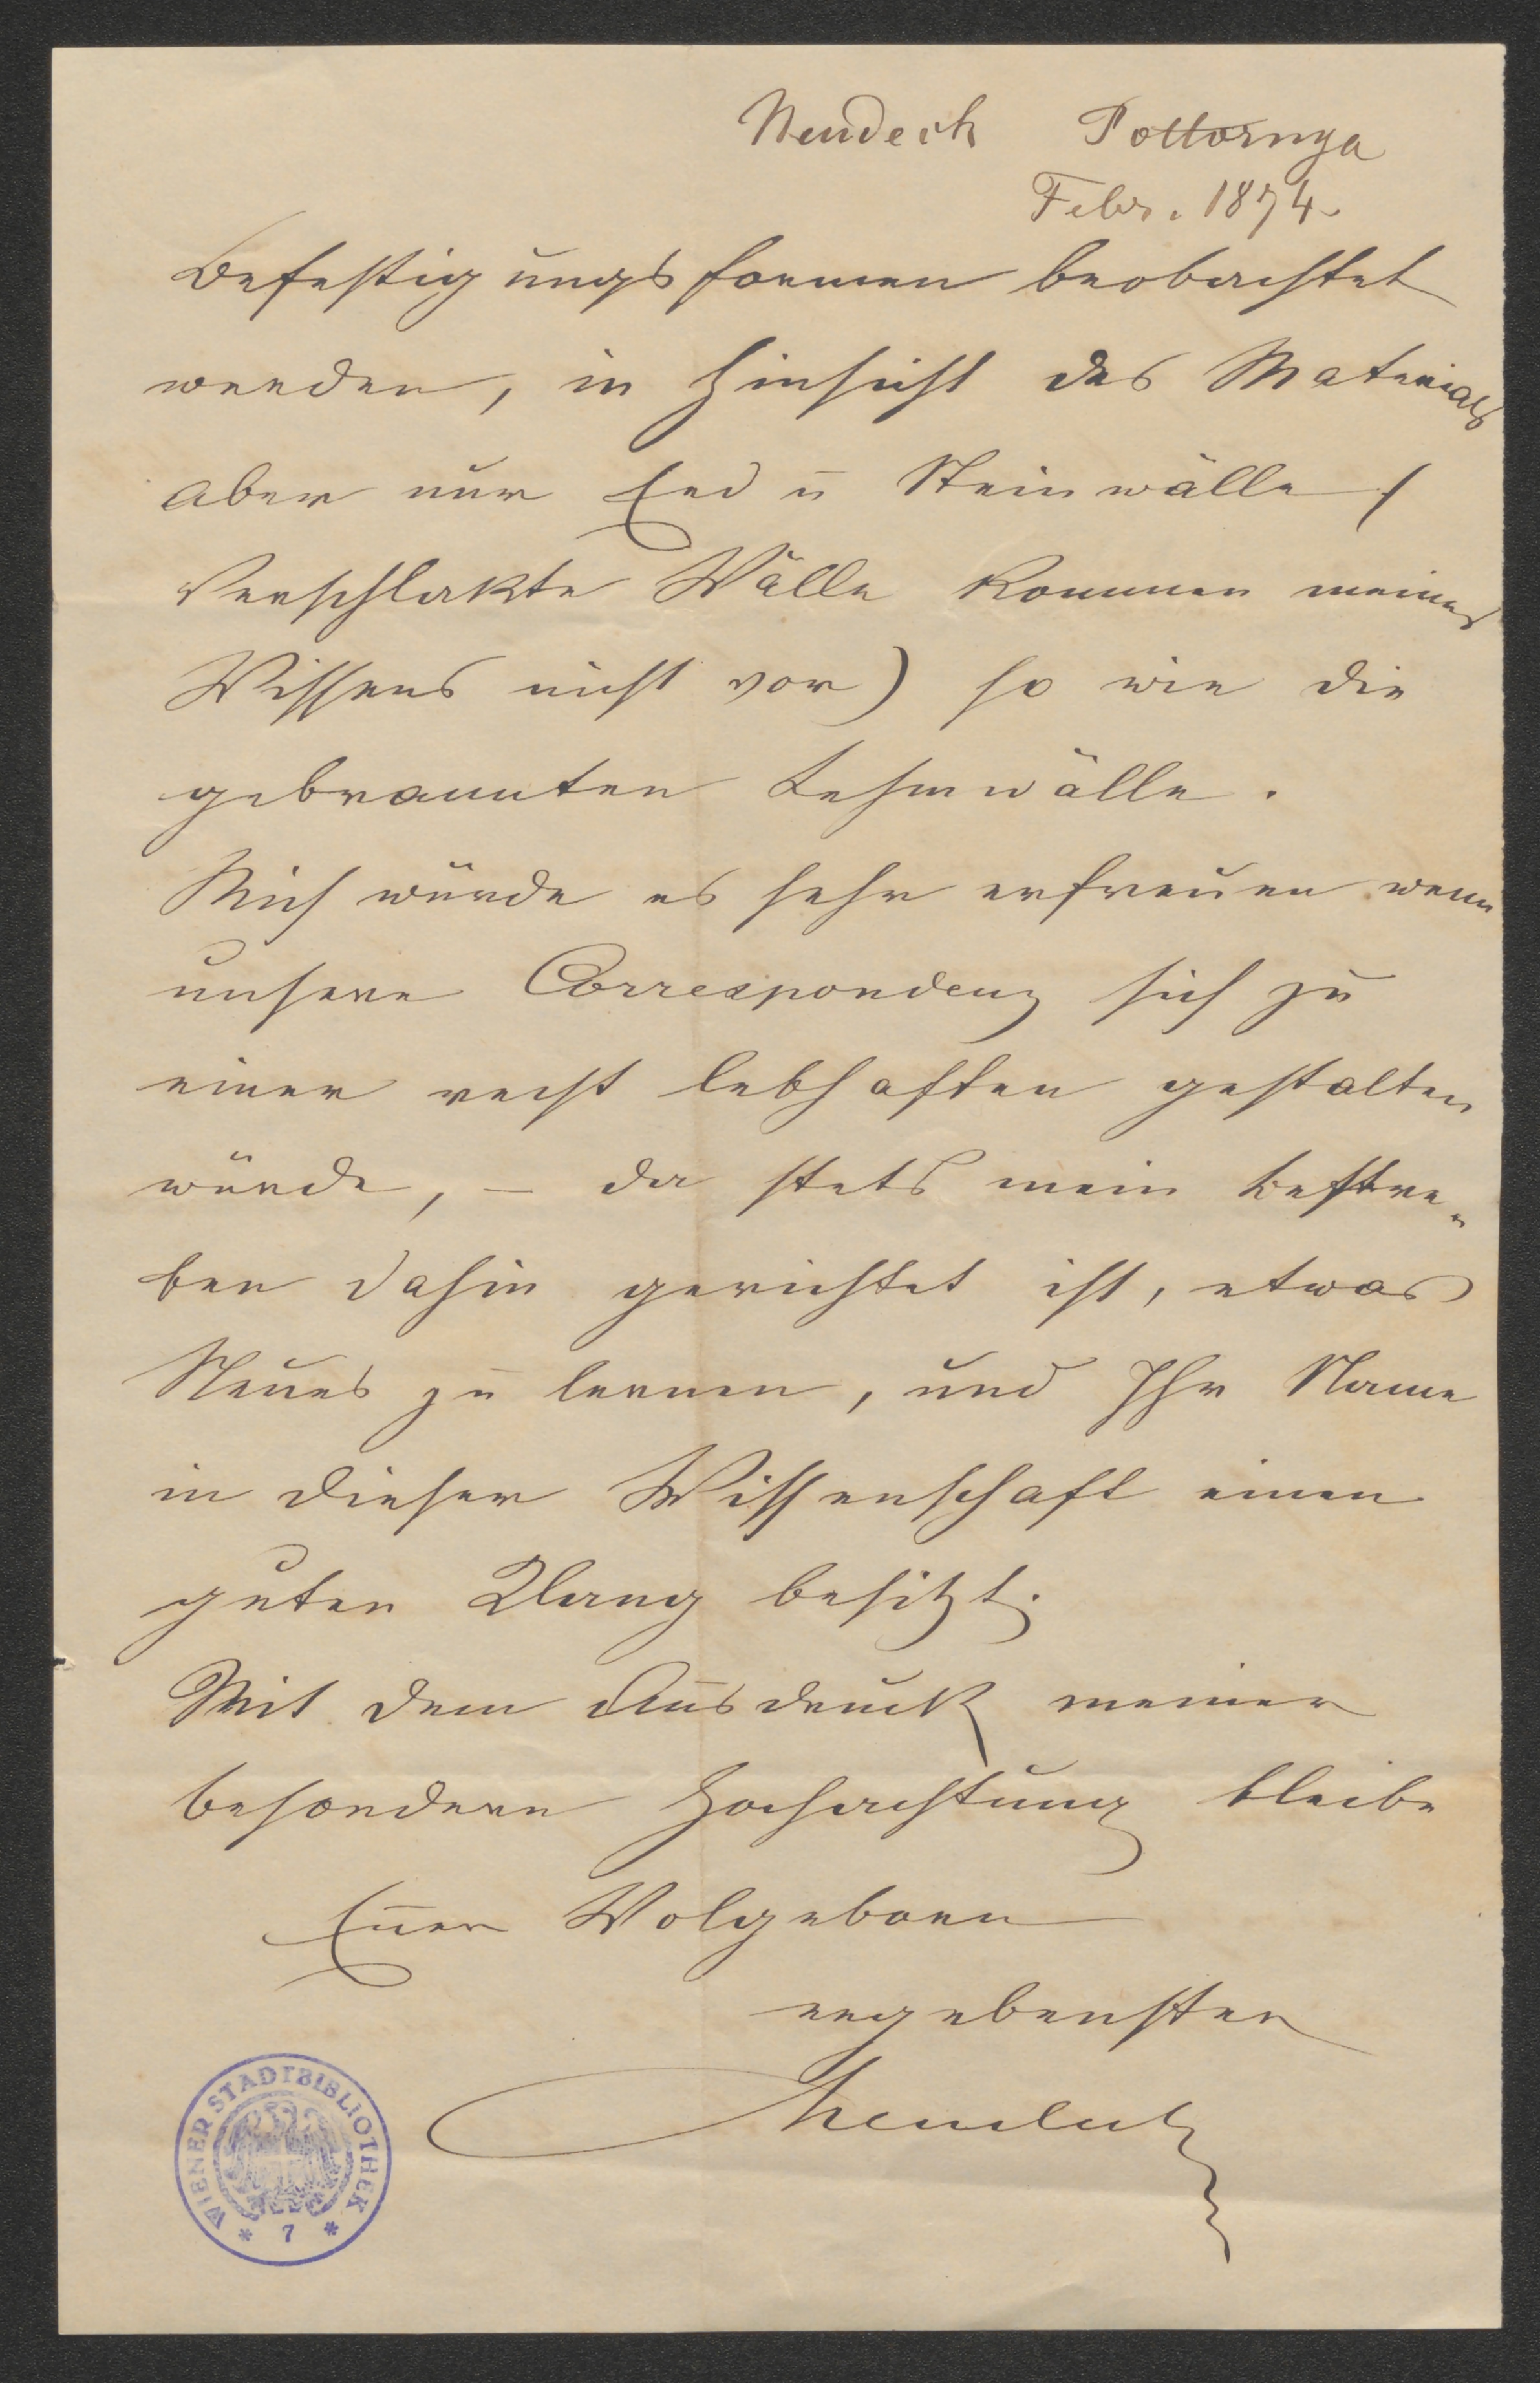 Neudeck Pottornya
Febr. 1874.
Befestigungsformen beobachtet
werden, in Hinsicht des Materials
aber nur Erd u Steinwälle (
Verschlakte Wälle kommen meines
Wissens nicht vor) so wie die
gebrannten Lehmwälle.
Mich würde es sehr erfreuen wenn
unsere Correspondenz sich zu
einer recht lebhaften gestalten
würde, – da stets mein Bestre„
ben dahin gerichtet ist, etwas
Neues zu lernen, und Ihr Name
in dieser Wissenschaft einen
guten Klang besitzt.
Mit dem Ausdruck meiner
besondern Hochachtung bleibe
Euer Wolgeborn
ergebenster
WIENER STADTBIBLIOTHEK
* 7 *